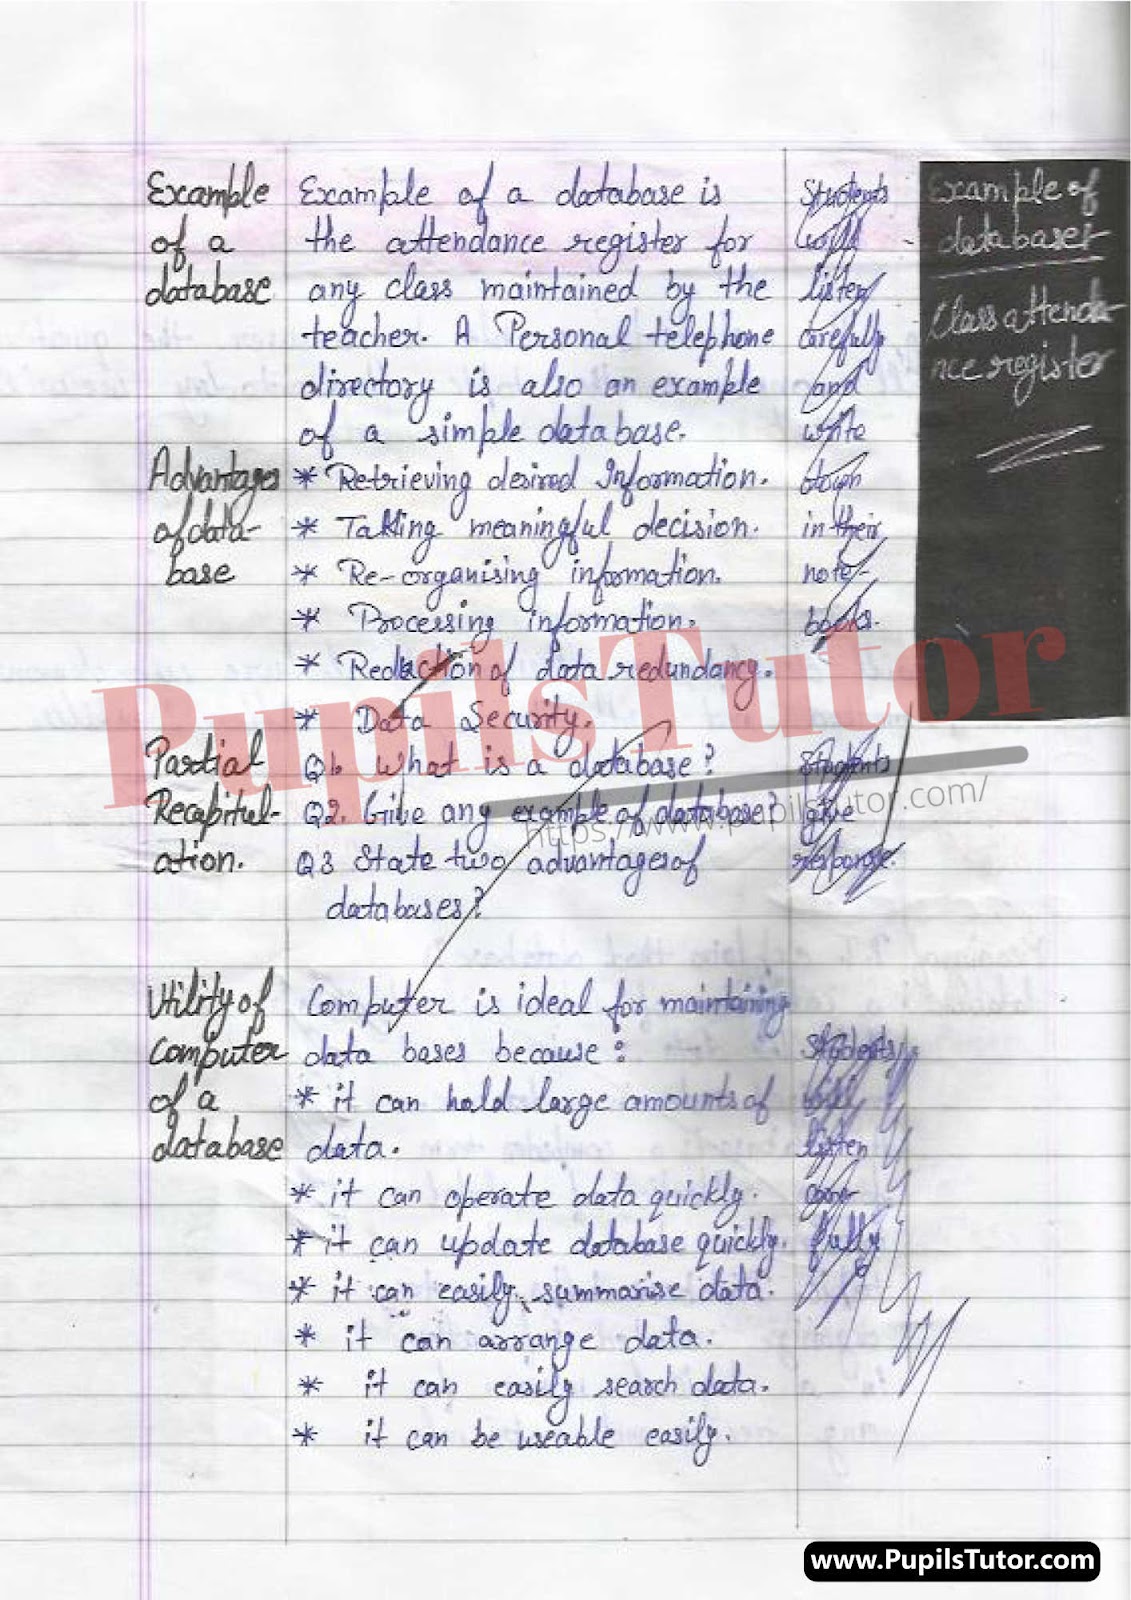 Example
of a
database
Example of a database is
the attendance register for
any class maintained by the
teacher. A Personal telephone
directory is also an example
of a simple database.
Students
will
listen
carefully
and
write
in their
note-
books.
Example of
databases
Class attenda-
nce register
Advantages
of data-
base
* Retrieving desired Information.
* Taking meaningful decision.
* Re-organising information.
* Processing information.
* Reduction of data redundancy.
* Data Security.
Partial
Recapitul-
ation.
Q1. What is a database?
Q2. Give any example of database?
Q3 State two advantages of
databases?
Students
give
response.
Utility of
computer
of a
database
Computer is ideal for maintaining
data bases because:
* it can hold large amounts of
data.
* it can operate data quickly.
* it can update database quickly.
* it can easily summarise data.
* it can arrange data.
* it can easily search data.
* it can be useable easily.
Students
will
listen
care-
fully
PupilsTutor
https://www.pupilstutor.com/
www.PupilsTutor.com